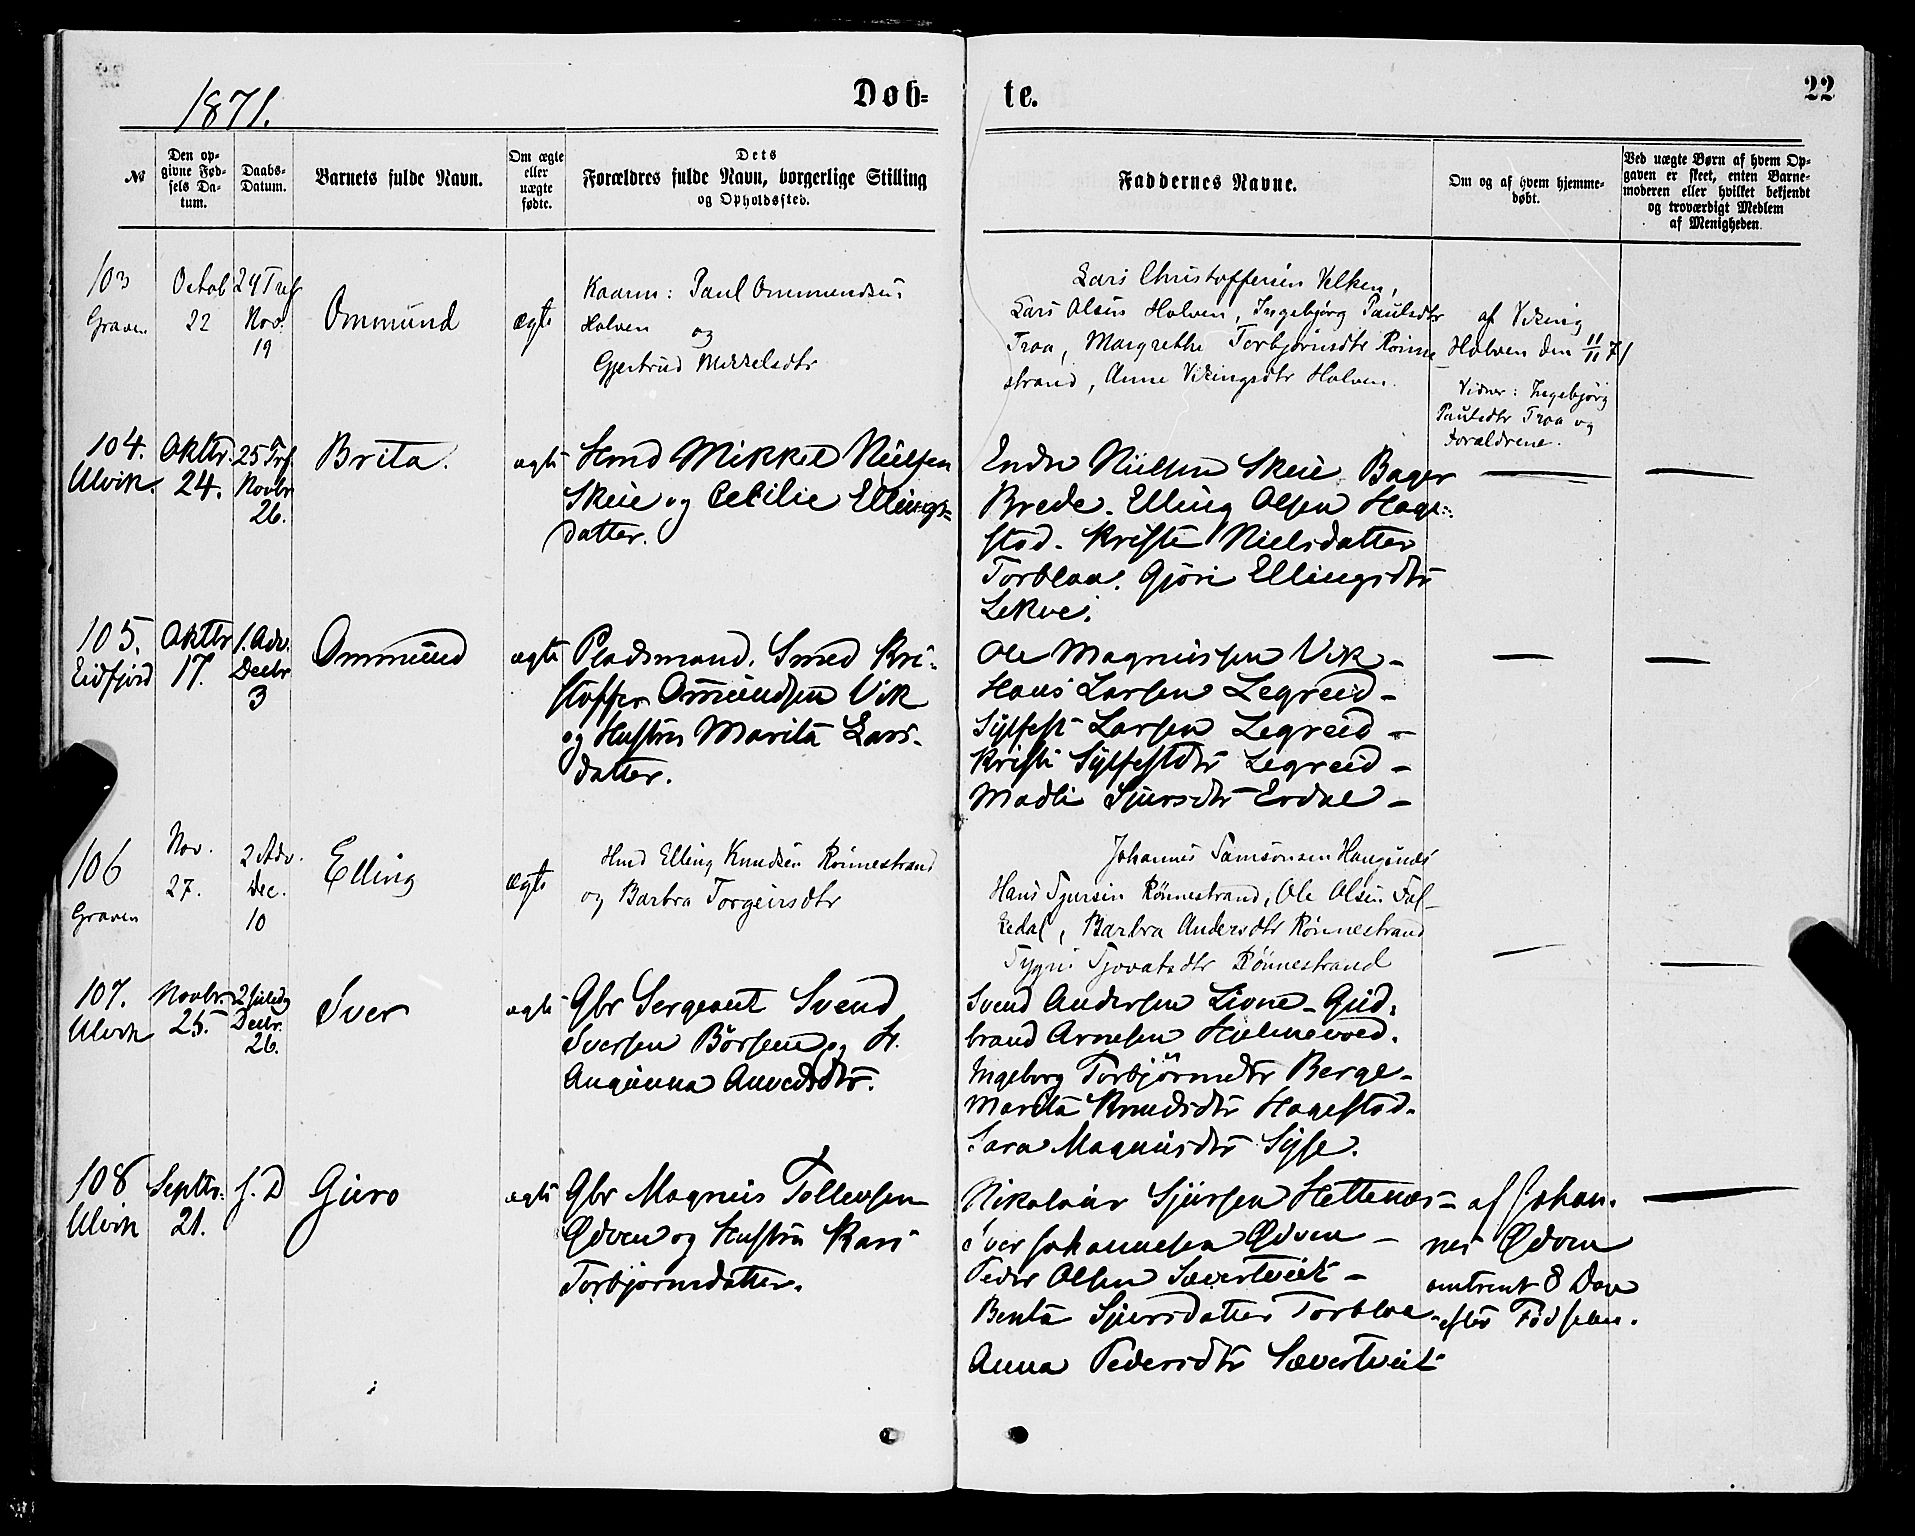 1871.
Døb=
te.
22
№
Den op-
givne Fød-
sels Da-
tum.
Daabs-
Datum.
Barnets fulde Navn.
Om ægte
eller
uægte
fødte.
Dets
Forældres fulde Navn, borgerlige Stilling
og Opholdssted.
Faddernes Navne.
Om og af hvem hjemme-
døbt.
Ved uægte Børn af hvem Op-
gaven er skeet, enten Barne-
moderen eller hvilket bekjendt
og troværdigt Medlem
af Menigheden.
103
Graven
Octob
22
24 Tref
Nov.
19
Ommund
ægte
Kaarm: Paul Ommundsen
Holven og
Gjertrud Mikkelsdtr
Lars Christoffersen Velken,
Lars Olsen Holven, Ingebjørg Paulsdtr
Traa, Margrethe Torbjørnsdtr Rønne
strand, Anne Vikingsdtr Holven.
af Viking
Holven den 11/11 71
Vidner: Ingebjørg
Paulsdtr Traa og
Forældrene.
104.
Ulvik.
Oktbr.
24.
25 Trf.
Novbr
26.
Brita.
ægte
Hmd Mikkel Nielsen
Skeie og Cecilie Ellings=
datter.
Endre Nielsen Skeie Bager
Brede. Elling Olsen Hage=
stad. Kristi Nielsdatter
Torblaa. Gjøri Ellingsdtr
Lekve.
105.
Eidfjord
Oktbr
17.
1. Adv.
Decbr
3
Ommund
ægte
Pladsmand. Smed Kri-
stoffer Omundsen Vik
og Hustru Marita Lars-
datter.
Ole Magnussen Vik -
Hans Larsen Legreid -
Sylfest Larsen Legreid -
Kristi Sylfestdtr Legreid -
Madli Sjursdtr Erdal -
106
Graven
Nov.
27.
2 Adv.
Dec.
10
Elling
ægte
Hmd Elling Knudsen Rønnestrand
og Barbra Torgeirsdtr
Johannes Samsonsen Haugenæs
Hans Sjursen Rønnestrand, Ole Olsen Fol-
kedal, Barbra Andersdtr Rønnestrand
Sygni Sjovatsdtr Rønnestrand
107.
Ulvik
Novbr.
25.
2 Juledg
Decbr.
26.
Iver
ægte
Gbr Sergeant Svend
Iversen Børsem og H.
Angunna Anvedsdtr.
Svend Andersen Lione - Gud-
brand Arnesen Hjelmevoed.
Ingeborg Torbjørnsdtr Berge -
Marita Knudsdtr Hagestad.
Sara Magnusdtr Sysse.
108
Ulvik
Septbr.
21.
s. D
Guro
ægte
Gbr Magnus Tollevsen
Ødven og Hustru Kari
Torbjørnsdatter.
Nikolai Sjursen Hettenæs -
Iver Johannesen Ødven -
Peder Olsen Sævertveit -
Benta Sjursdatter Torbloa
Anna Pedersdtr Sævertveit
af Johan-
nes Ødven
omtrent 8 Dage
efter Fødselen.